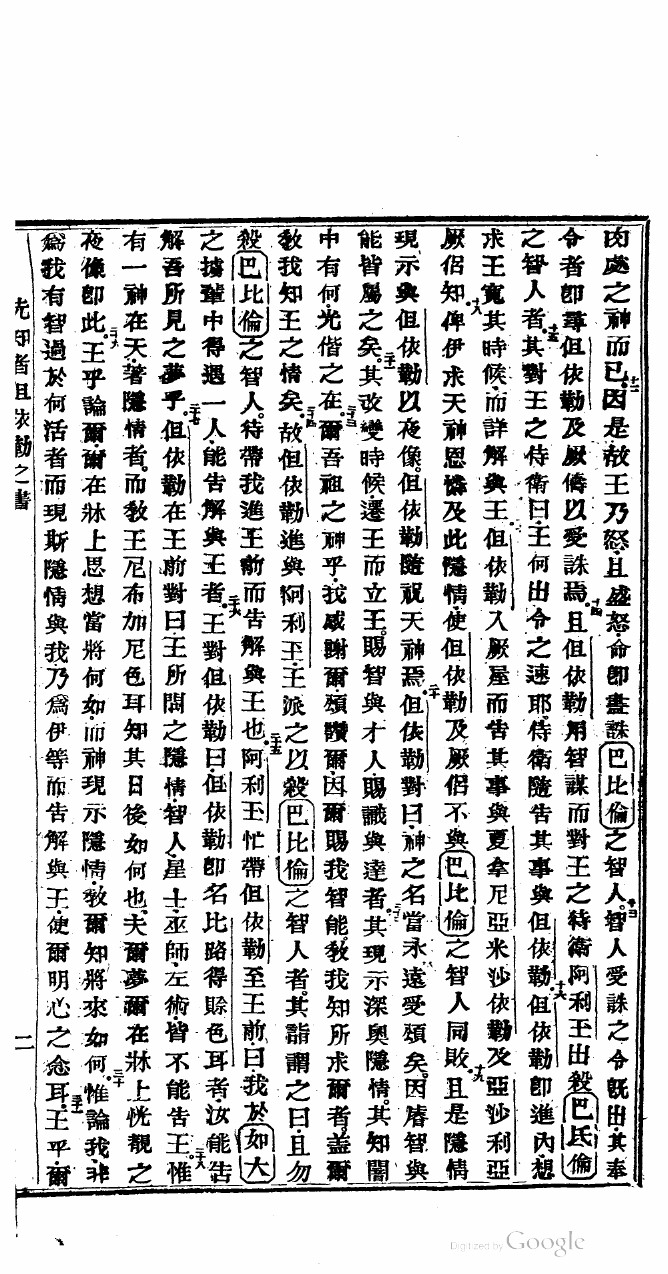 肉處之神而已十二因是故王乃怒且盛怒命即盡誅巴比倫之智人十三智人受誅之令既出其奉
令者即尋但依勒及厥儔以受誅焉十四且但依勒用智謀而對王之侍衛阿利王出殺巴氐倫
之智人者十五其對王之侍衛曰王何出令之速耶侍衛隨告其事與但依勒十六但依勒即進內想
求王寬其時候而詳解與王十七但依勒入厥屋而告其事與夏拿尼亞米沙依勒及亞沙利亞
厥侶知十八俾伊求天神恩憐及此隱情使但依勒及厥侶不與巴比倫之智人同敗十九且是隱情
現示與但依勒以夜像但依勒隨祝天神焉二十但依勒對曰神之名當永遠受頌矣因睿智與
能皆屬之矣二十一其改變時候遷王而立王賜智與才人賜識與達者二十二其現示深奧隱情其知闇
中有何光偕之在二十三爾吾祖之神乎我感謝爾頌讚爾因爾賜我智能教我知所求爾者蓋爾
教我知王之情矣二十四故但依勒進與阿利王王派之以殺巴比倫之智人者其詣謂之曰且勿
殺巴比倫之智人待帶我進王前而告解與王也二十五阿利王忙帶但依勒至王前曰我於如大
之擄輩中得遇一人能告解與王者二十六王對但依勒曰但依勒即名比路得賒色耳者汝能告
解吾所見之夢乎二十七但依勒在王前對曰王所問之隱情智人星士巫師左術皆不能告王二十八惟
有一神在天著隱情者而教王尼布加尼色耳知其日後如何也夫爾夢爾在牀上恍覩之
夜像即此二十九王乎論爾爾在牀上思想當將何如而神現示隱情教爾知將來如何三十惟論我非
為我有智過於何活者而現斯隱情與我乃為伊等而告解與王使爾明心之念耳三十一王乎爾
先知者但依勒之書 二
Digitized by Google